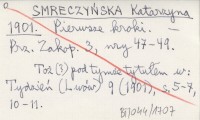 SMRECZYŃSKA Katarzyna
1901. Pierwsze kroki. —
Prz. Zakop. 3, nry 47-49.
Toż (3) pod tymże tytułem w:
Tydzień (Lwów) 9 (1901), s. 5-7,
10-11.
BJ1044/1707